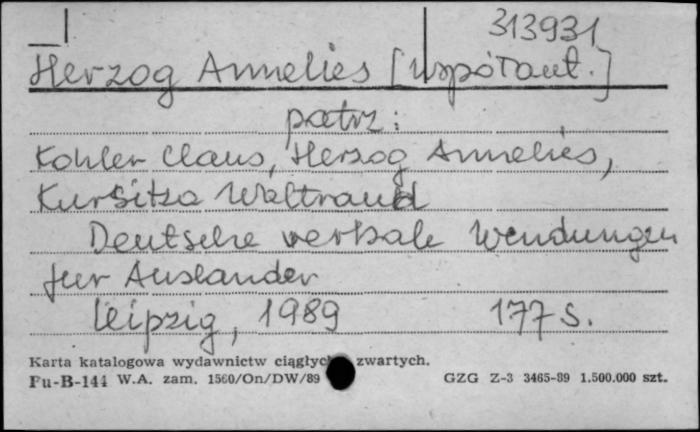 313931
Herzog Annelies [współaut.]
patrz:
Kohler Claus, Herzog Annelies,
Kursitza Waltraud
Deutsche verbale Wendungen
fur Auslander
Leipzig, 1989 177 s.
Karta katalogowa wydawnictw ciągłych zwartych.
Pu-B-144 W.A. zam. 1560/On/DW/89 GZG Z-3 3465-89 1.500.000 szt.